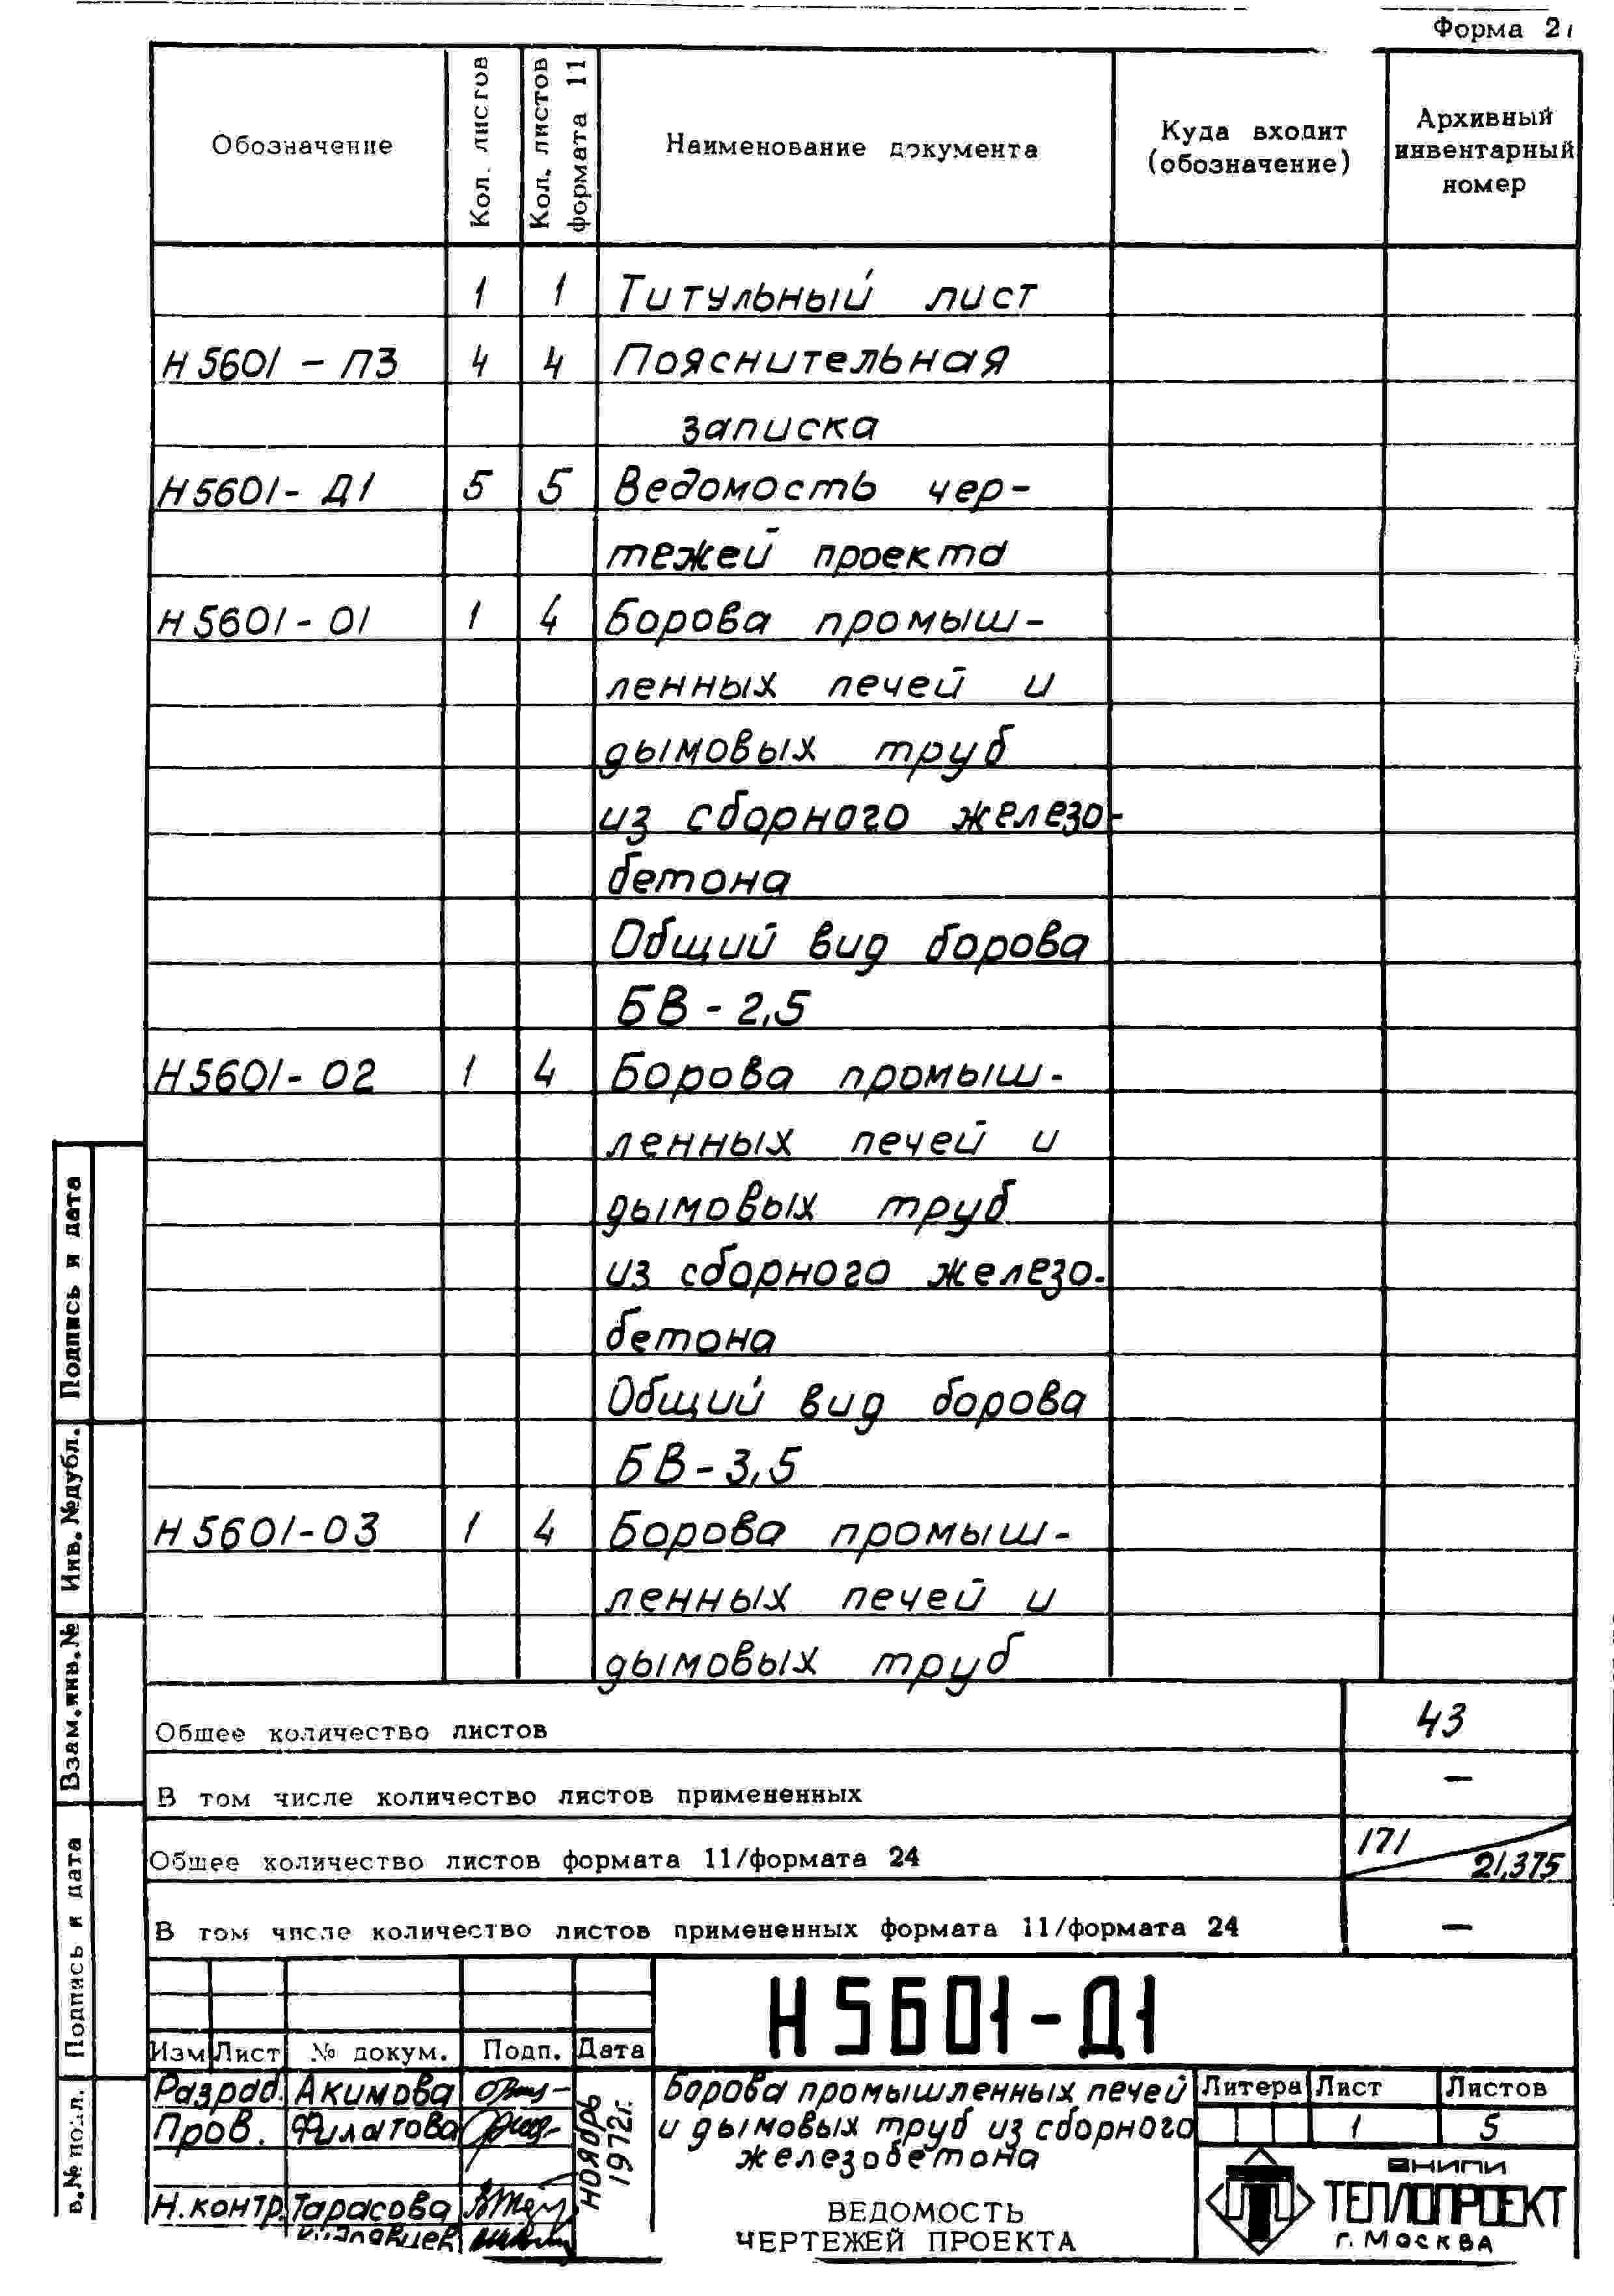 Форма 2
Обозначение
Кол. листов
Кол. листов формата 11
Наименование документа
Куда входит
(обозначение)
Архивный
инвентарный
номер
1 1 Титульный лист
Н5601-ПЗ 4 4 Пояснительная
записка
Н5601-Д1 5 5 Ведомость чер-
тежей проекта
Н5601-01 1 4 Борова промыш-
ленных печей и
дымовых труб
из сборного железо-
бетона
Общий вид борова
БВ-2,5
Н5601-02 1 4 Борова промыш-
ленных печей и
дымовых труб
из сборного железо-
бетона
Общий вид борова
БВ-3,5
Н5601-03 1 4 Борова промыш-
ленных печей и
дымовых труб
Общее количество листов 43
В том числе количество листов примененных –
Общее количество листов формата 11/формата 24 171 21,375
В том числе количество листов примененных формата 11/формата 24 –
Подпись и дата
Инв.№дубл.
Взам.инв.№
Подпись и дата
в.№ подл.
Н5601-Д1
Изм Лист № докум. Подп. Дата
Разраб. Акимова
Пров. Филатова
Н.контр. Тарасова
ноябрь
1972г.
Борова промышленных печей
и дымовых труб из сборного
железобетона
ВЕДОМОСТЬ
ЧЕРТЕЖЕЙ ПРОЕКТА
Литера Лист Листов
1 5
ВНИПИ
ТЕПЛОПРОЕКТ
г. Москва